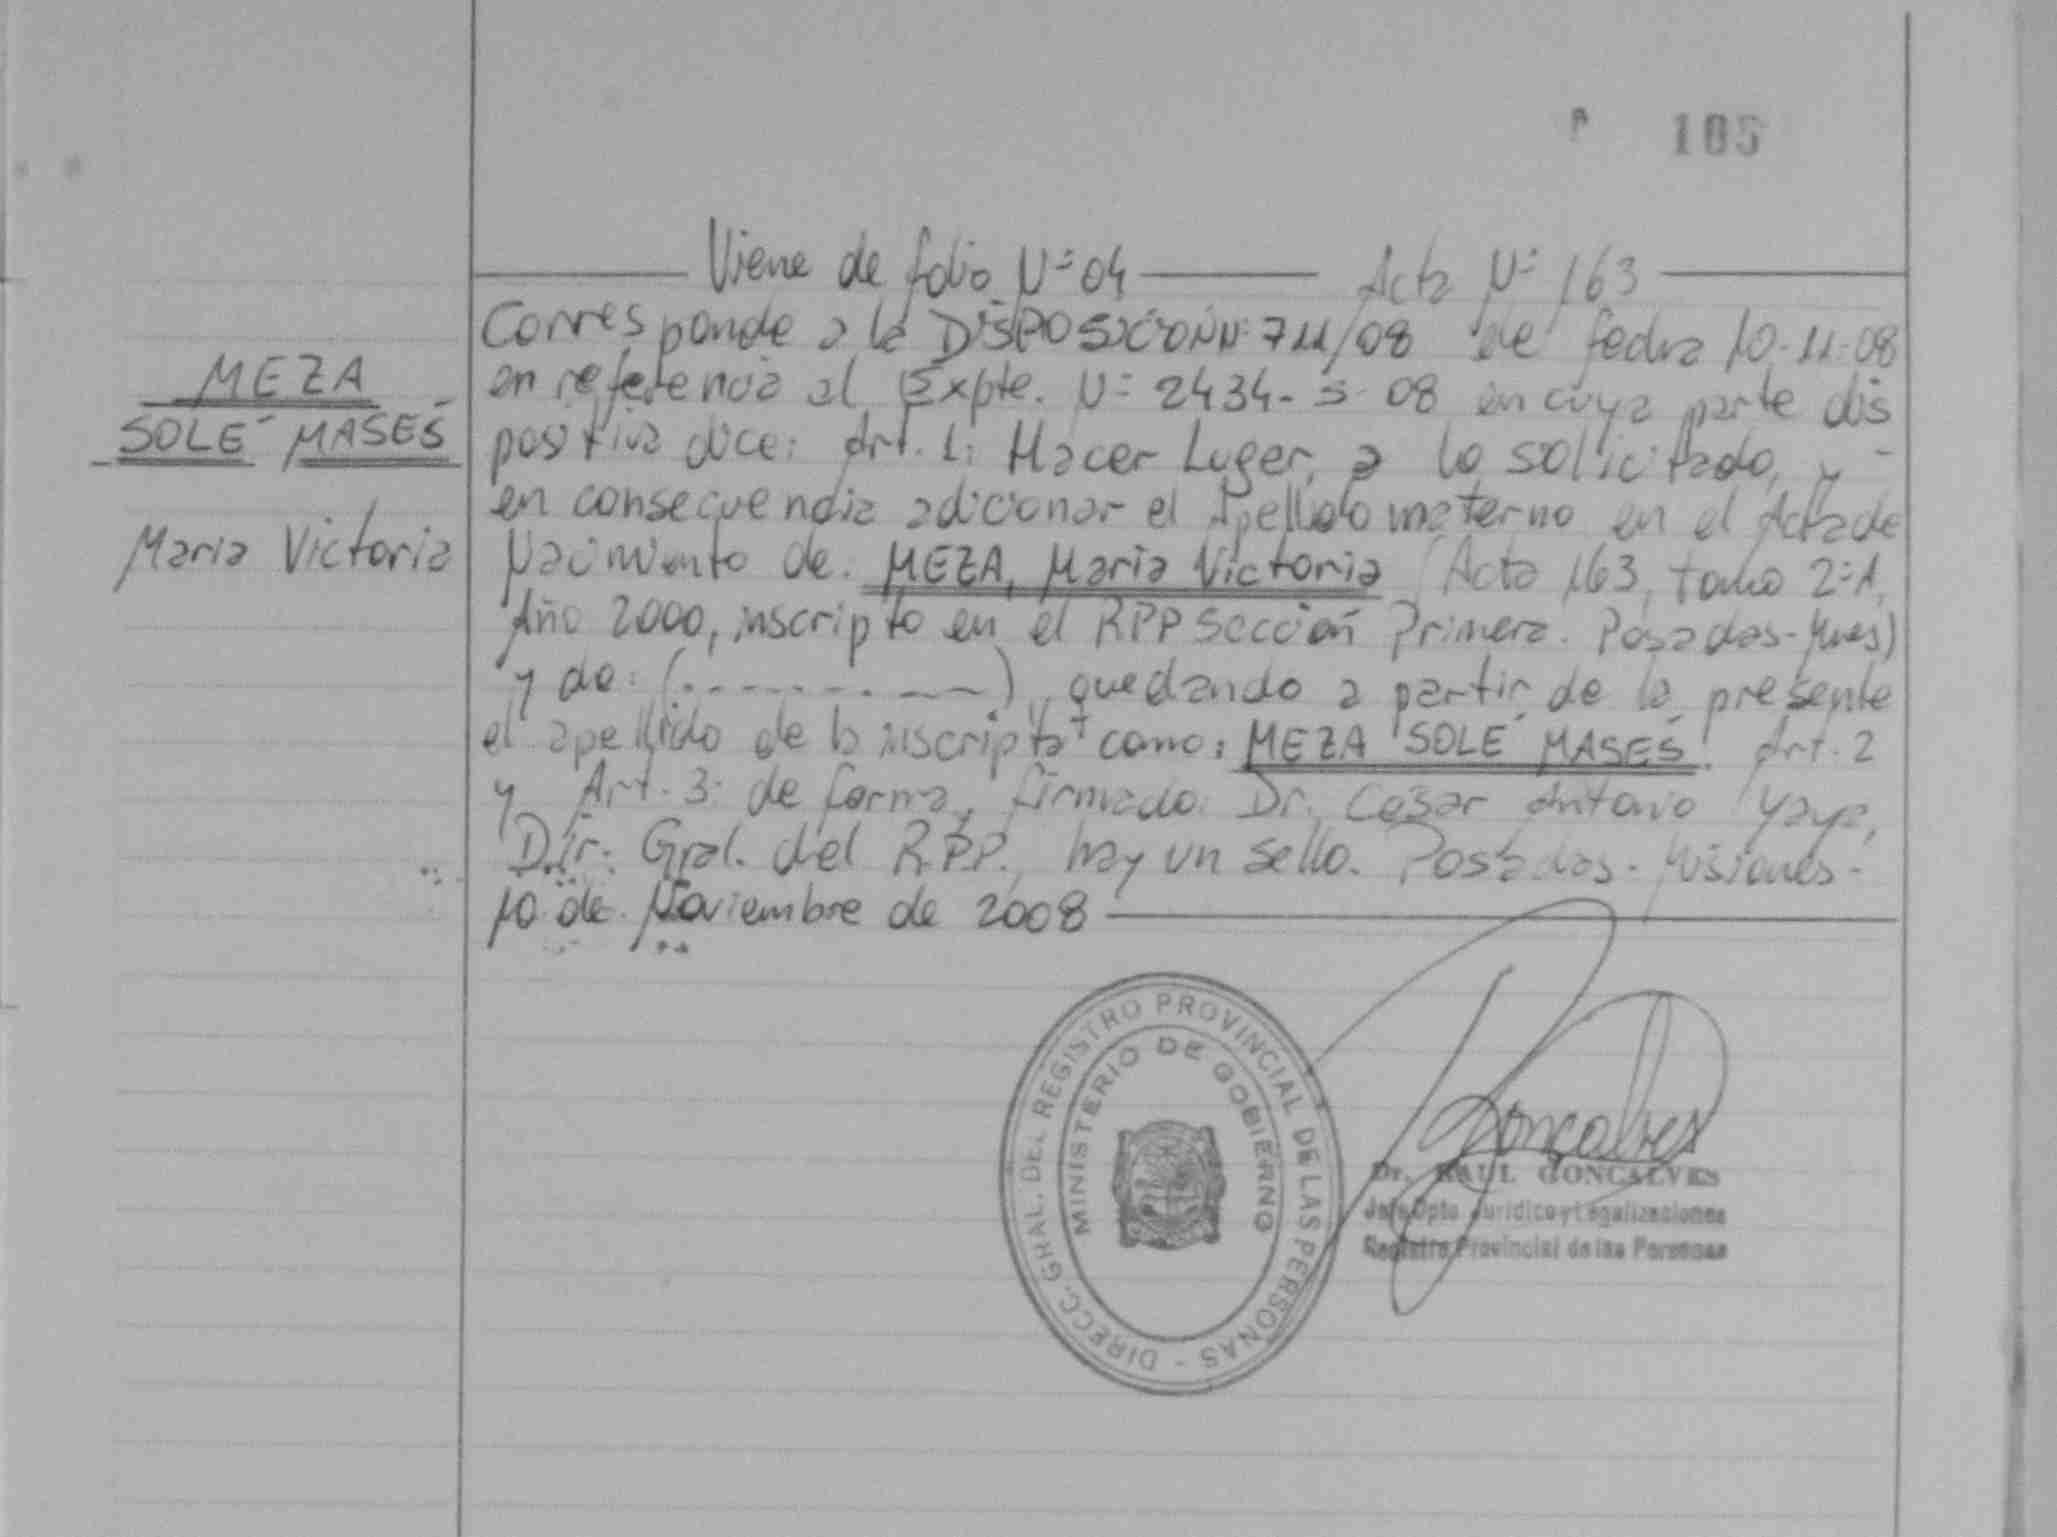 105
Viene de folio N° 04 Acta N° 163
MEZA
SOLÉ MASÉS
Maria Victoria
Corresponde a la DISPOSICIÓN N° 711/08 de fecha 10-11-08
en referencia al Expte. N° 2434-S-08 en cuya parte dis
positiva dice: Art. 1: Hacer Lugar, a lo solicitado, y -
en consecuencia adicionar el Apellido materno en el Acta de
Nacimiento de: MEZA, Maria Victoria (Acta 163, tomo 2°A,
Año 2000, inscripto en el RPP Sección Primera. Posadas-Mnes)
y de: (- - - - - - - - -), quedando a partir de la presente
el apellido de la inscripta como: MEZA SOLÉ MASÉS. Art. 2
y Art. 3: de forma, firmado: Dr. César Antonio Yaya,
Dir. Gral. del R.P.P., hay un sello. Posadas - Misiones -
10 de Noviembre de 2008
DIRECC. GRAL. DEL REGISTRO PROVINCIAL DE LAS PERSONAS -
MINISTERIO DE GOBIERNO
Goncalves
Dr. RAUL GONCALVES
Jefe Dpto. Juridico y Legalizaciones
Registro Provincial de las Personas